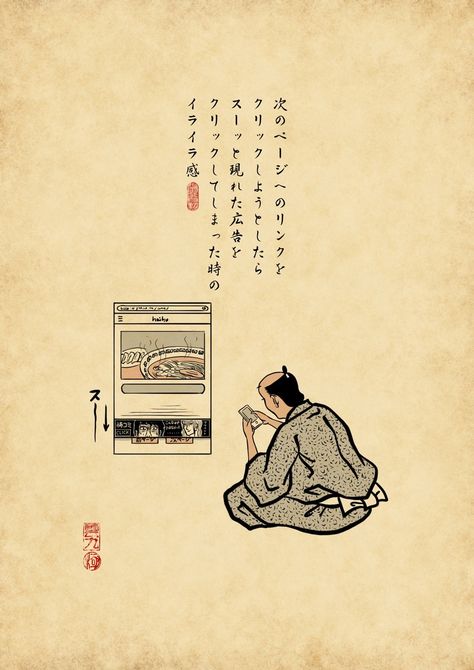 次のページへのリンクを
クリックしようとしたら
スーッと現れた広告を
クリックしてしまった時の
イライラ感
haiku
スー